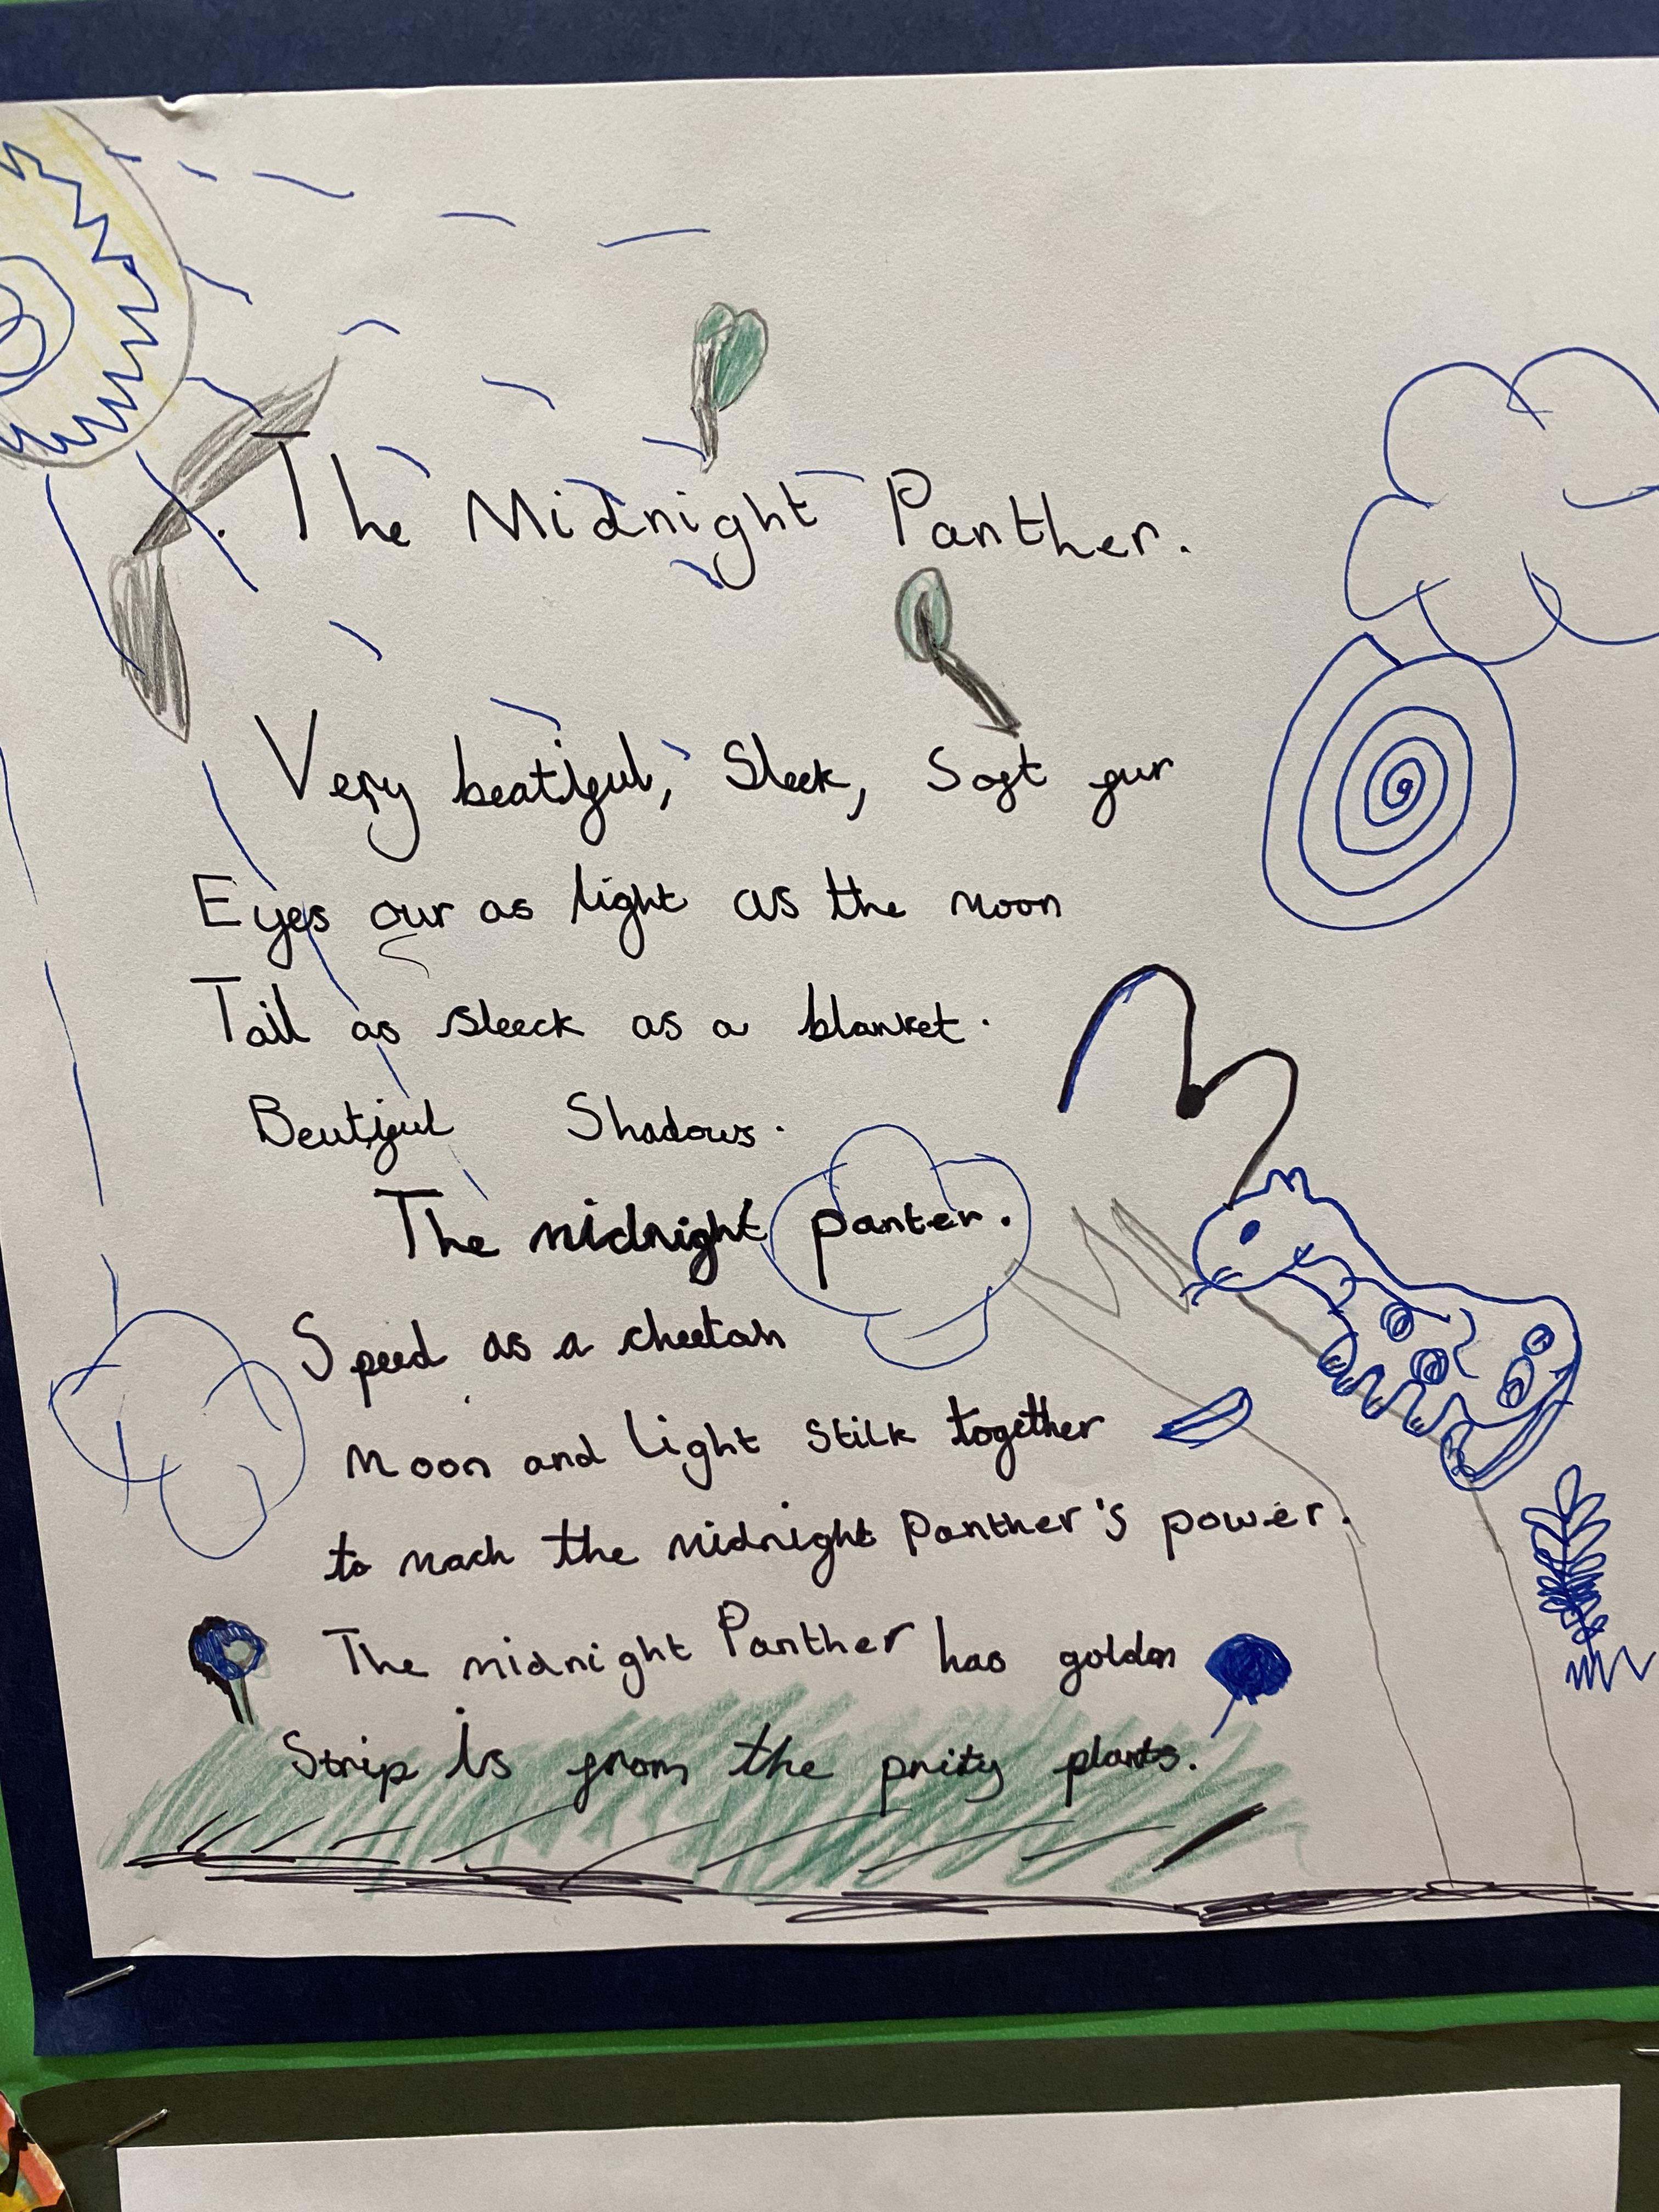 The Midnight Panther.
Very beatiful, Sleek, Soft fur
Eyes our as light as the moon
Tail as sleeck as a blanket.
Beutiful Shadows.
The midnight panter.
Speed as a cheetah
Moon and light stilk together
to mach the midnight Panther's power.
The midnight Panther has golden
Strip is from the prity plants.